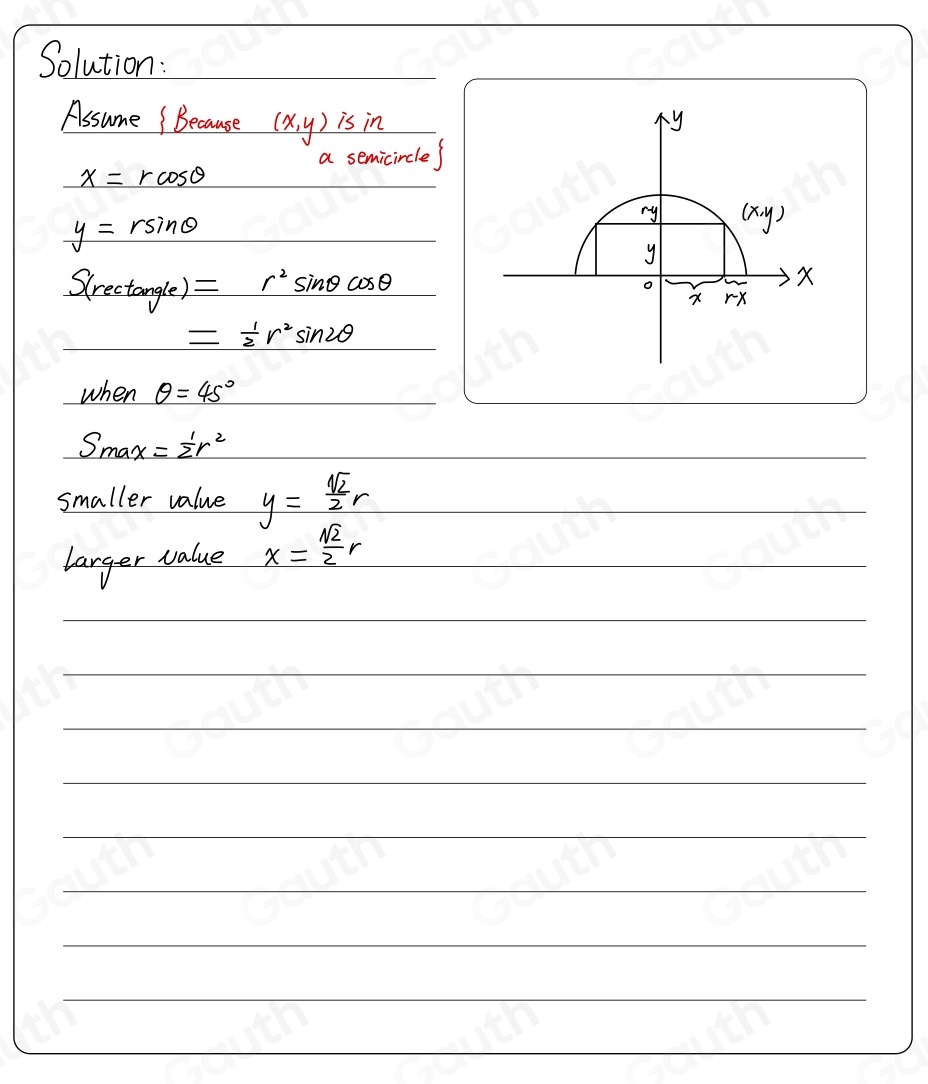 Solution:
Assume {Because (x,y) is in
a semicircle}
x = r cosθ
y = rsinθ
S(rectangle) = r² sinθ cosθ
= 1/2 r² sin2θ
when θ = 45°
Smax = 1/2 r²
smaller value y = √2/2 r
Larger value x = √2/2 r
y
r-y
(x,y)
y
o
x
r-x
X
Gauth